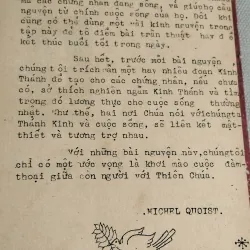 mà các chứng nhân đang sống, và giúp họ cầu
nguyện từ chính cuộc sống của họ. Đôi khi
cũng có thể dùng một vài kinh nguyện trong
tập này để tô điểm bài trần thuật hay để
kết thúc buổi tối trong ngày.
Sau hết, trước mỗi bài nguyện
chúng tôi trích vắn một hay nhiều đoạn Kinh
Thánh để tạo cho các chứng nhân, nếu chưa
có, sở thích nghiền ngẫm Kinh Thánh và tìm
trong đó lương thực cho cuộc sống thường
nhật. Như thế, hai nơi Chúa nói với chúng ta
Thánh Kinh và cuộc sống, sẽ liên kết mật-
thiết và tương trợ nhau.
Với những bài nguyện này, chúng tôi
chỉ có một ước vọng là khơi mào cuộc đàm-
thoại giữa con người với Thiên Chúa.
MICHEL QUOIST.